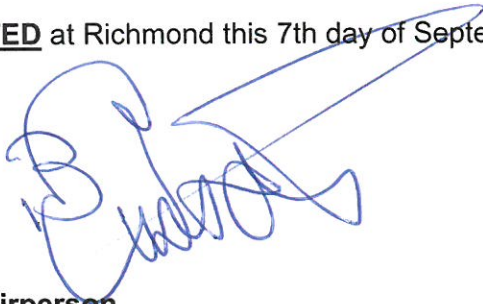 ED at Richmond this 7th day of Septe
irperson